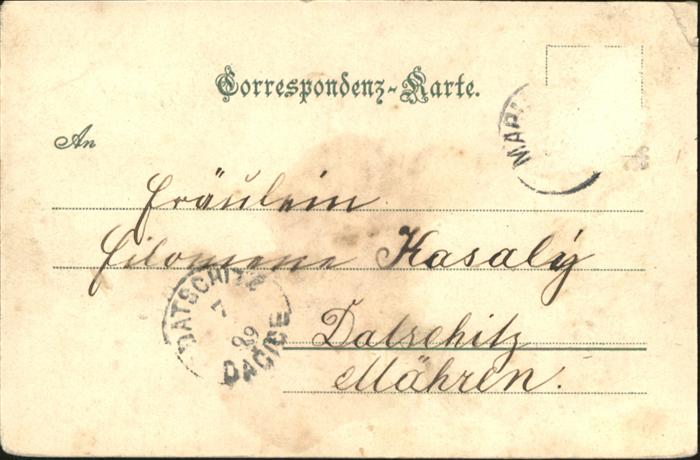 Correspondenz-Karte.
An
Fräulein
Filomene Kasalý
Datschitz
Mähren.
DATSCHITZ
DAČICE